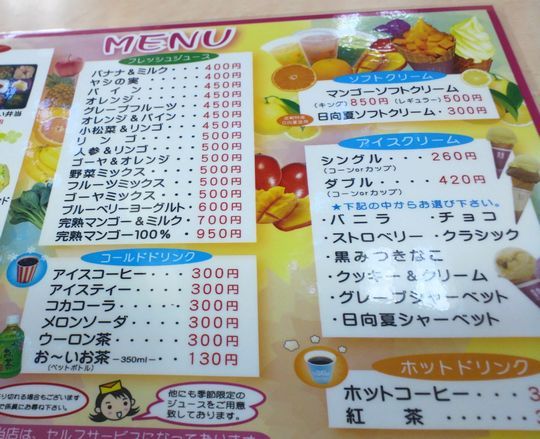 MENU
フレッシュジュース
バナナ＆ミルク・・・400円
ヤシの実・・・・・・400円
パイン・・・・・・・400円
オレンジ・・・・・・400円
グレープフルーツ・・450円
オレンジ＆パイン・・450円
小松菜＆リンゴ・・・450円
リンゴ・・・・・・・500円
人参＆リンゴ・・・・500円
ゴーヤ＆オレンジ・・500円
野菜ミックス・・・・500円
フルーツミックス・・500円
ゴーヤミックス・・・500円
ブルーベリーヨーグルト・500円
完熟マンゴー＆ミルク・700円
完熟マンゴー100％・・950円
コールドドリンク
アイスコーヒー・・・300円
アイスティー・・・・300円
コカコーラ・・・・・300円
メロンソーダ・・・・300円
ウーロン茶・・・・・300円
お～いお茶－350ml－・・130円
(ペットボトル)
他にも季節限定の
ジュースをご用意
致しております。
ソフトクリーム
マンゴーソフトクリーム
(キング)850円(レギュラー)500円
日向夏ソフトクリーム・・300円
アイスクリーム
シングル・・・・260円
(コーンorカップ)
ダブル・・・・・420円
(コーンorカップ)
★下記の中からお選び下さい。
・バニラ ・チョコ
・ストロベリー・クラシック
・黒みつきなこ
・クッキー＆クリーム
・グレープシャーベット
・日向夏シャーベット
ホットドリンク
ホットコーヒー・・・3
紅茶・・・・
い弁当
り切れる場合もございます
当店は、セルフサービスになっております